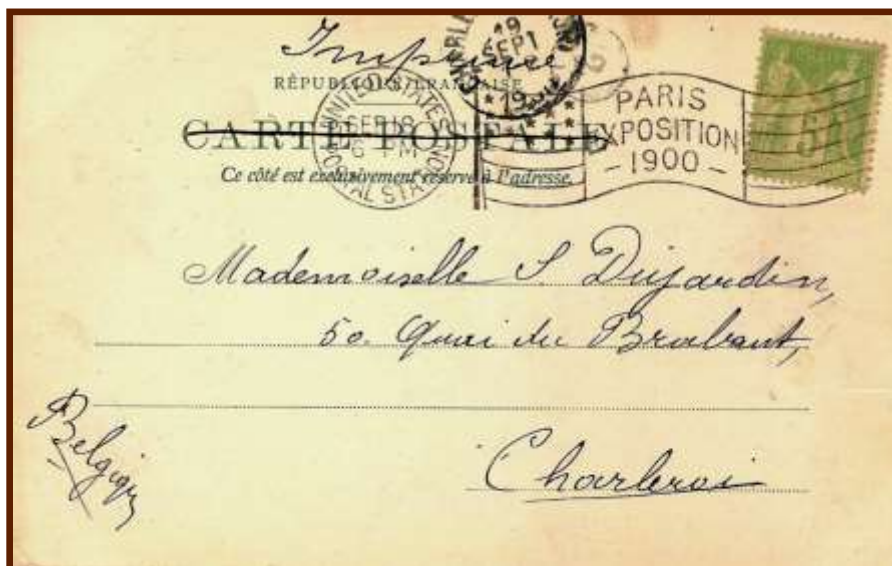 Imprimé
RÉPUBLIQUE FRANÇAISE
CARTE POSTALE
Ce côté est exclusivement réservé à l'adresse.
UNITED STATES
SEP 18
6 PM
POSTAL STATION
19
SEPT
PARIS
EXPOSITION
-1900-
5
Mademoiselle S. Dujardin,
50. Quai du Brabant,
Belgique
Charleroi